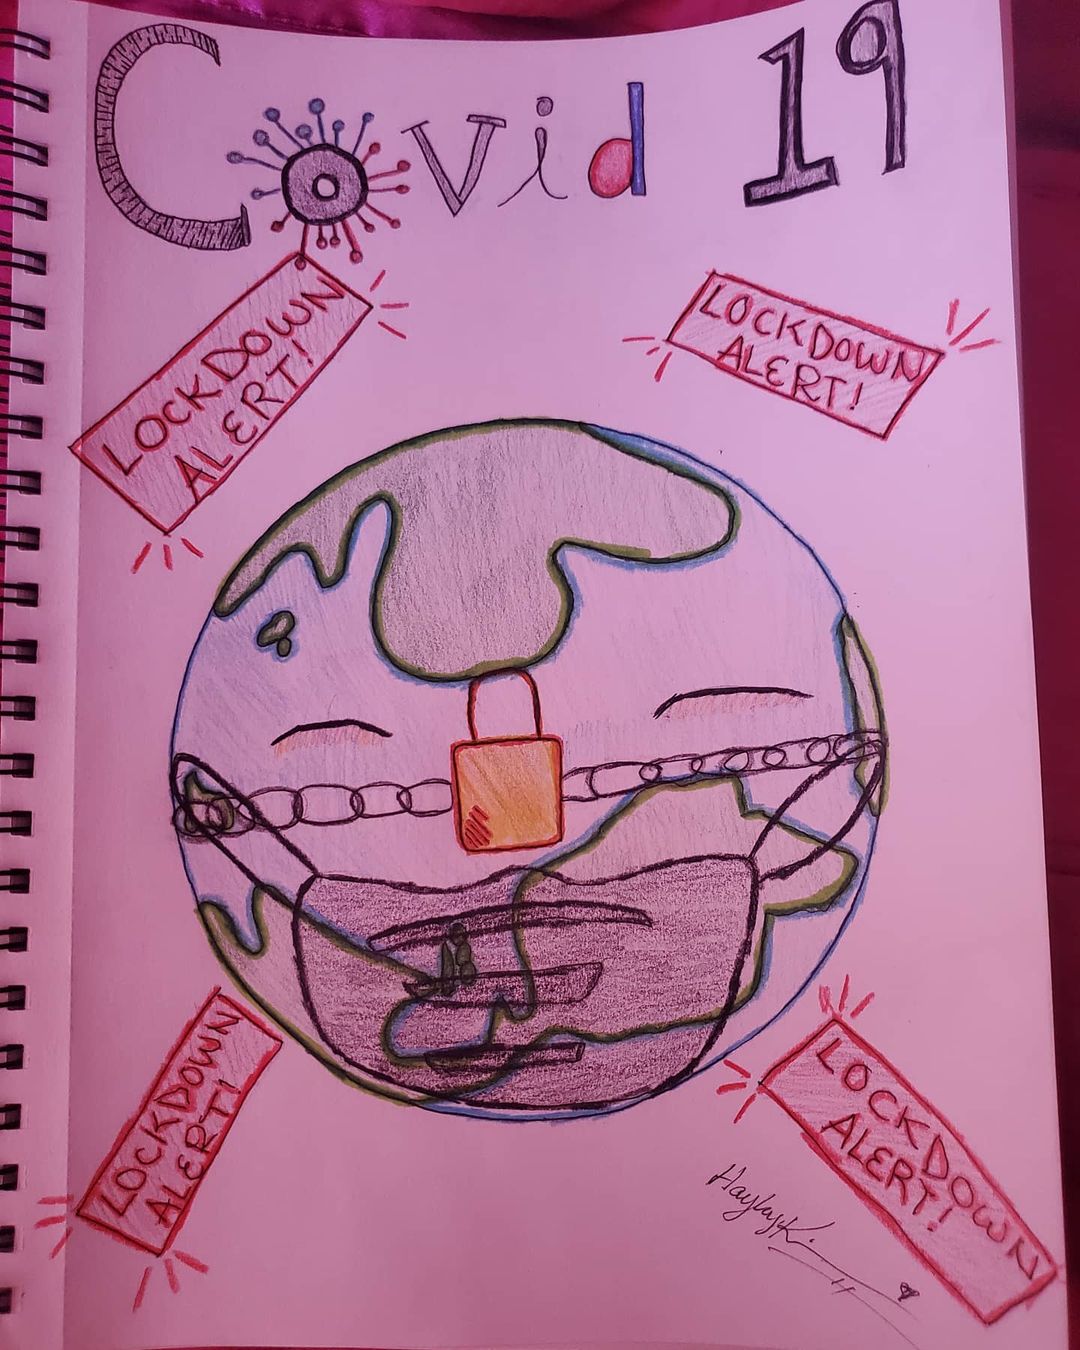 Covid 19
LOCKDOWN
ALERT!
LOCKDOWN
ALERT!
LOCKDOWN
ALERT!
LOCKDOWN
ALERT!